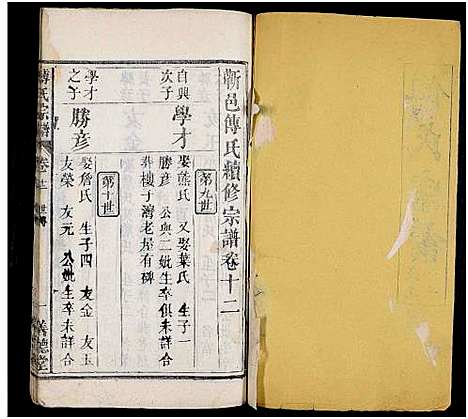 蘄邑傅氏續修宗譜卷十二
第九世
自興
次子
學才
娶熊氏 又娶葉氏 生子一
勝彥 公與二妣生卒俱未詳合
塟樓子灣老屋有碑
第十世
學才
之子
勝彥
娶詹氏 生子四 友金 友玉
友榮 友元 公妣生卒未詳合
傅氏宗譜
卷十二 世傳
一 義德堂